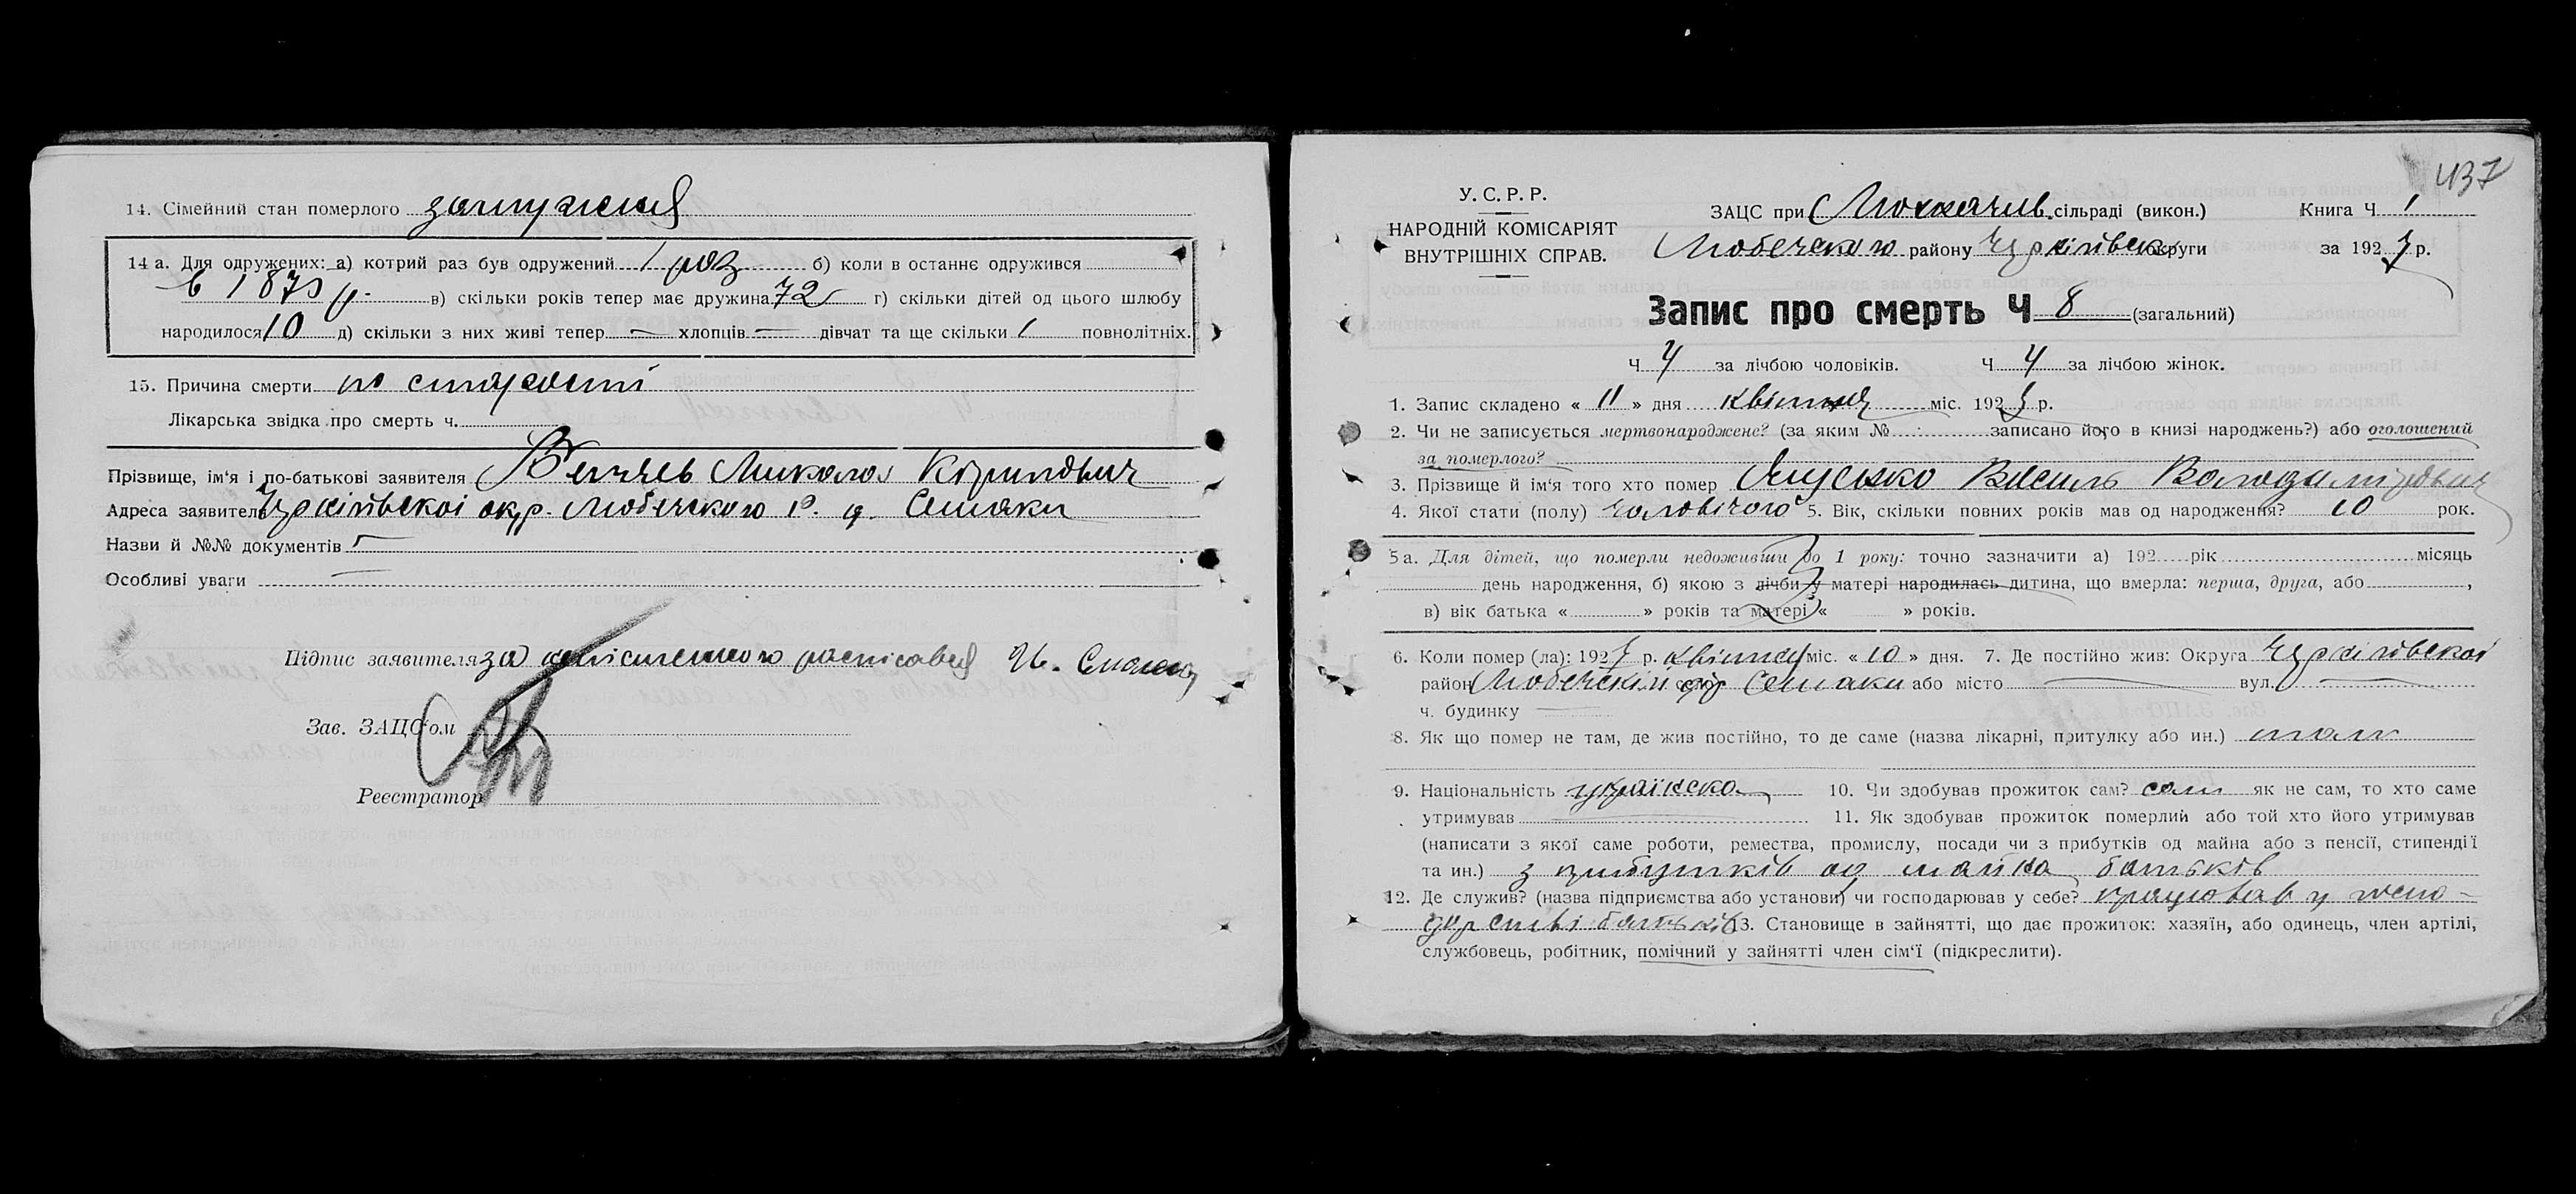 14. Сімейний стан померлого замужняя
14 а. Для одружених: а) котрий раз був одружений 1 раз б) коли в останнє одружився
в 187 р. в) скільки років тепер має дружина 72 г) скільки дітей од цього шлюбу
народилося 10 д) скільки з них живі тепер — хлопців — дівчат та ще скільки 1 повнолітніх.
15. Причина смерти по старости
Лікарська звідка про смерть ч.
Прізвище, ім'я і по-батькові заявителя Микола Кирилович
Адреса заявителя Чернігівскоі окр. Любечского р. Семаки
Назви й №№ документів —
Особливі уваги —
Підпис заявителя за расписався
Зав. ЗАЦС'ом
Реєстратор
437
У. С. Р. Р.
НАРОДНІЙ КОМІСАРІЯТ
ВНУТРІШНІХ СПРАВ.
ЗАЦС при сільраді (викон.) Книга Ч 1
Любечского району Чернігівськ. округи за 1927 р.
Запис про смерть Ч 8 (загальний)
Ч 4 за лічбою чоловіків. Ч 4 за лічбою жінок.
1. Запис складено « 11 » дня квітня міс. 192 р.
2. Чи не записується мертвонароджене? (за яким № записано його в книзі народжень?) або оголошений
за померлого?
3. Прізвище й ім'я того хто помер Василь Володимірович
4. Якої стати (полу) чоловічого 5. Вік, скільки повних років мав од народження? 10 рок.
5 а. Для дітей, що померли недоживши до 1 року: точно зазначити а) 192 рік місяць
день народження, б) якою з лічби у матері народилась дитина, що вмерла: перша, друга, або ,
в) вік батька « » років та матері « » років.
6. Коли помер (ла): 1927 р. квітня міс. « 10 » дня. 7. Де постійно жив: Округа Чернігівскоі
район Любечскій село Семаки або місто — вул. —
ч. будинку —
8. Як що помер не там, де жив постійно, то де саме (назва лікарні, притулку або ин.) там
9. Національність українска 10. Чи здобував прожиток сам? сам як не сам, то хто саме
утримував 11. Як здобував прожиток померлий або той хто його утримував
(написати з якої саме роботи, ремества, промислу, посади чи з прибутків од майна або з пенсії, стипендії
та ин.) з прибутків од майна батьків
12. Де служив? (назва підприємства або установи) чи господарював у себе? працював у госпо-
дарстві батьків 13. Становище в зайнятті, що дає прожиток: хазяїн, або одинець, член артілі,
службовець, робітник, помічний у зайнятті член сім'ї (підкреслити).